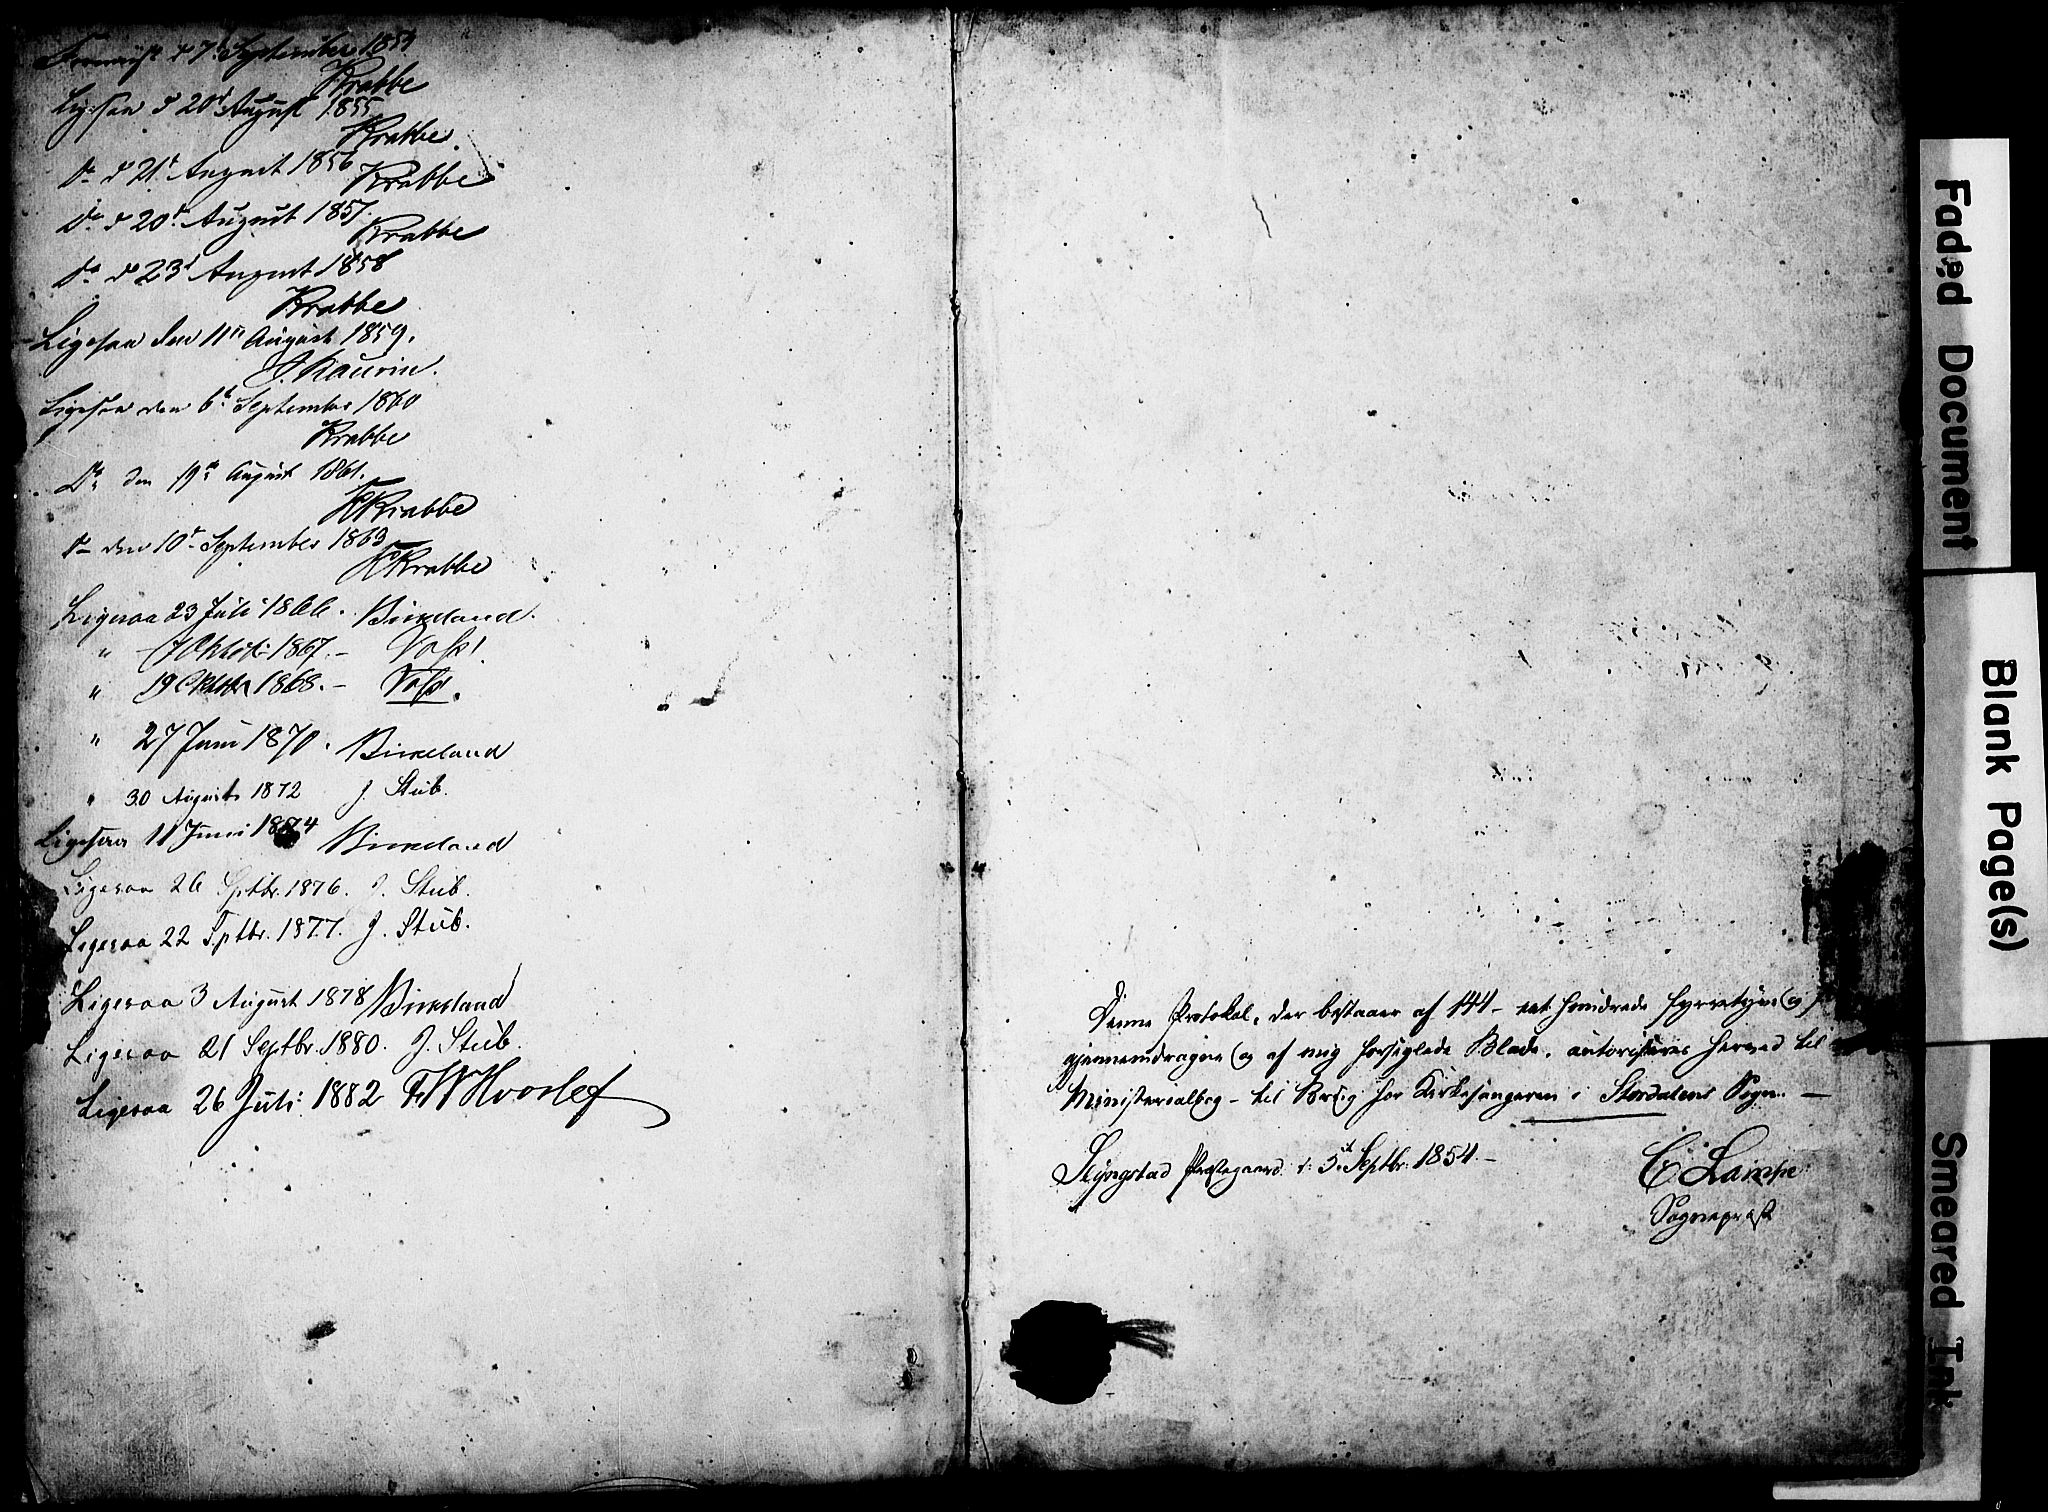 Foreviist d 7de September 1854
Krabbe
Ligesaa d 20d August 1855
Krabbe.
Do d 21d August 1856
Krabbe
Do d 20d August 1857.
Krabbe
Do d 23d August 1858
Krabbe
Ligesaa den 11te August 1859.
J. Kaurin.
Ligesaa den 6te September 1860
Krabbe
Do den 19de August 1861.
Krabbe
Do den 10de September 1863
Krabbe
Ligesaa 23 Juli 1866. Birkeland.
" 7 Oktob: 1867. – Voss.
" 19 Oktober 1868. – Voss.
" 27 Juni 1870. Birkeland
" 30 August 1872 J. Stub.
Ligesaa 11 Juni 1874 Birkeland
Ligesaa 26 Septbr. 1876. J. Stub.
Ligesaa 22 Septbr. 1877. J. Stub.
Ligesaa 3 August 1878 Birkeland
Ligesaa 21 Septbr. 1880. J. Stub.
Ligesaa 26 Juli 1882 FWHvoslef
Denne Protokol, der bestaaer af 144 – eet hundrede fyrretyve og
gjennemdragne og af mig forseglede Blade, autoriseres herved til
Ministerialbog – til Brug for Kirkesangeren i Stordalens Sogn. –
Slyngstad Præstegaard d: 5te Septbr: 1854. –
C Lampe
Sognepræst
Faded Document
Blank Page(s)
Smeared Ink